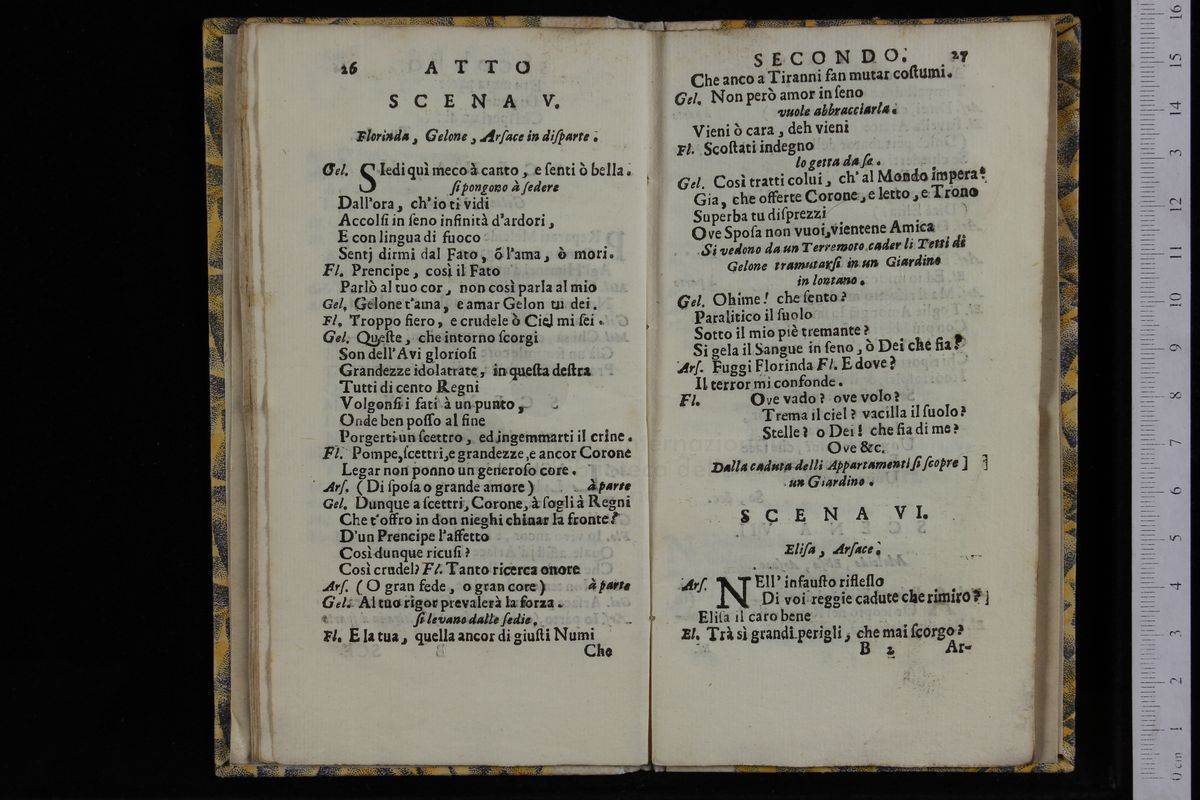 26 ATTO
SCENA V.
Florinda, Gelone, Arſace in diſparte.
Gel. SIedi quì meco à canto, e ſenti ò bella.
ſi pongono à ſedere
Dall'ora, ch'io ti vidi
Accolſi in ſeno infinità d'ardori,
E con lingua di fuoco
Sentj dirmi dal Fato, ò l'ama, ò mori.
Fl. Prencipe, così il Fato
Parlò al tuo cor, non così parla al mio
Gel. Gelone t'ama, e amar Gelon tu dei.
Fl. Troppo fiero, e crudele ò Ciel mi ſei.
Gel. Queſte, che intorno ſcorgi
Son dell'Avi glorioſi
Grandezze idolatrate, in queſta deſtra
Tutti di cento Regni
Volgonſi i fati à un punto,
Onde ben poſſo al fine
Porgerti un ſcettro, ed ingemmarti il crine.
Fl. Pompe, ſcettri, e grandezze, e ancor Corone
Legar non ponno un generoſo core.
Arſ. (Di ſpoſa o grande amore) à parte
Gel. Dunque a ſcettri, Corone, à ſogli à Regni
Che t'offro in don nieghi chinar la fronte?
D'un Prencipe l'affetto
Così dunque ricuſi?
Così crudel? Fl. Tanto ricerca onore
Arſ. (O gran fede, o gran core) à parte
Gel. Al tuo rigor prevalerà la forza.
ſi levano dalle ſedie.
Fl. E la tua, quella ancor di giuſti Numi
Che
SECONDO. 27
Che anco a Tiranni fan mutar coſtumi.
Gel. Non però amor in ſeno
vuole abbracciarla.
Vieni ò cara, deh vieni
Fl. Scoſtati indegno
lo getta da ſe.
Gel. Così tratti colui, ch'al Mondo impera?
Gia, che offerte Corone, e letto, e Trono
Superba tu diſprezzi
Ove Spoſa non vuoi, vientene Amica
Si vedono da un Terremoto cader li Tetti di
Gelone tramutarſi in un Giardino
in lontano.
Gel. Ohime! che ſento?
Paralitico il ſuolo
Sotto il mio piè tremante?
Si gela il Sangue in ſeno, ò Dei che fia?
Arſ. Fuggi Florinda Fl. E dove?
Il terror mi confonde.
Fl. Ove vado? ove volo?
Trema il ciel? vacilla il ſuolo?
Stelle? o Dei! che fia di me?
Ove &c.
Dalla caduta delli Appartamenti ſi ſcopre
un Giardino.
SCENA VI.
Eliſa, Arſace.
Arſ. NEll' infauſto rifleſſo
Di voi reggie cadute che rimiro?
Eliſa il caro bene
El. Trà sì grandi perigli, che mai ſcorgo?
B 2 Ar-